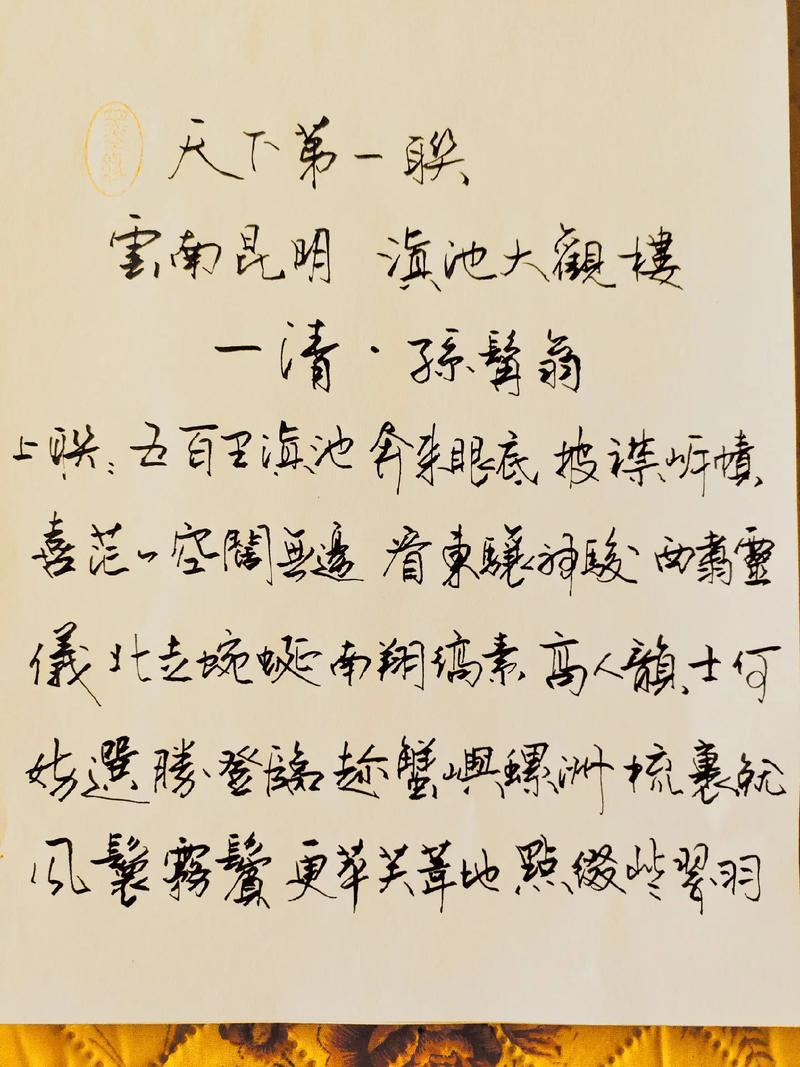 天下第一聯
雲南昆明 滇池大觀樓
一清·孫髯翁
上聯：五百里滇池 奔來眼底 披襟岸幘
喜茫々空闊無邊 看東驤神駿 西翥靈
儀 北走蜿蜒 南翔縞素 高人韻士何
妨選勝登臨 趁蟹嶼螺洲 梳裹就
風鬟霧鬢 更苹芙葦地 點綴些翠羽